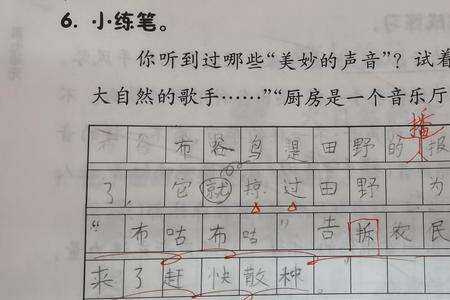 6. 小练笔。
你听到过哪些“美妙的声音”？试着
大自然的歌手……”“厨房是一个音乐厅
播
布谷鸟是田野的报
了，它就掠过田野 为
“布咕布咕”告拆农民
来了赶快散种。